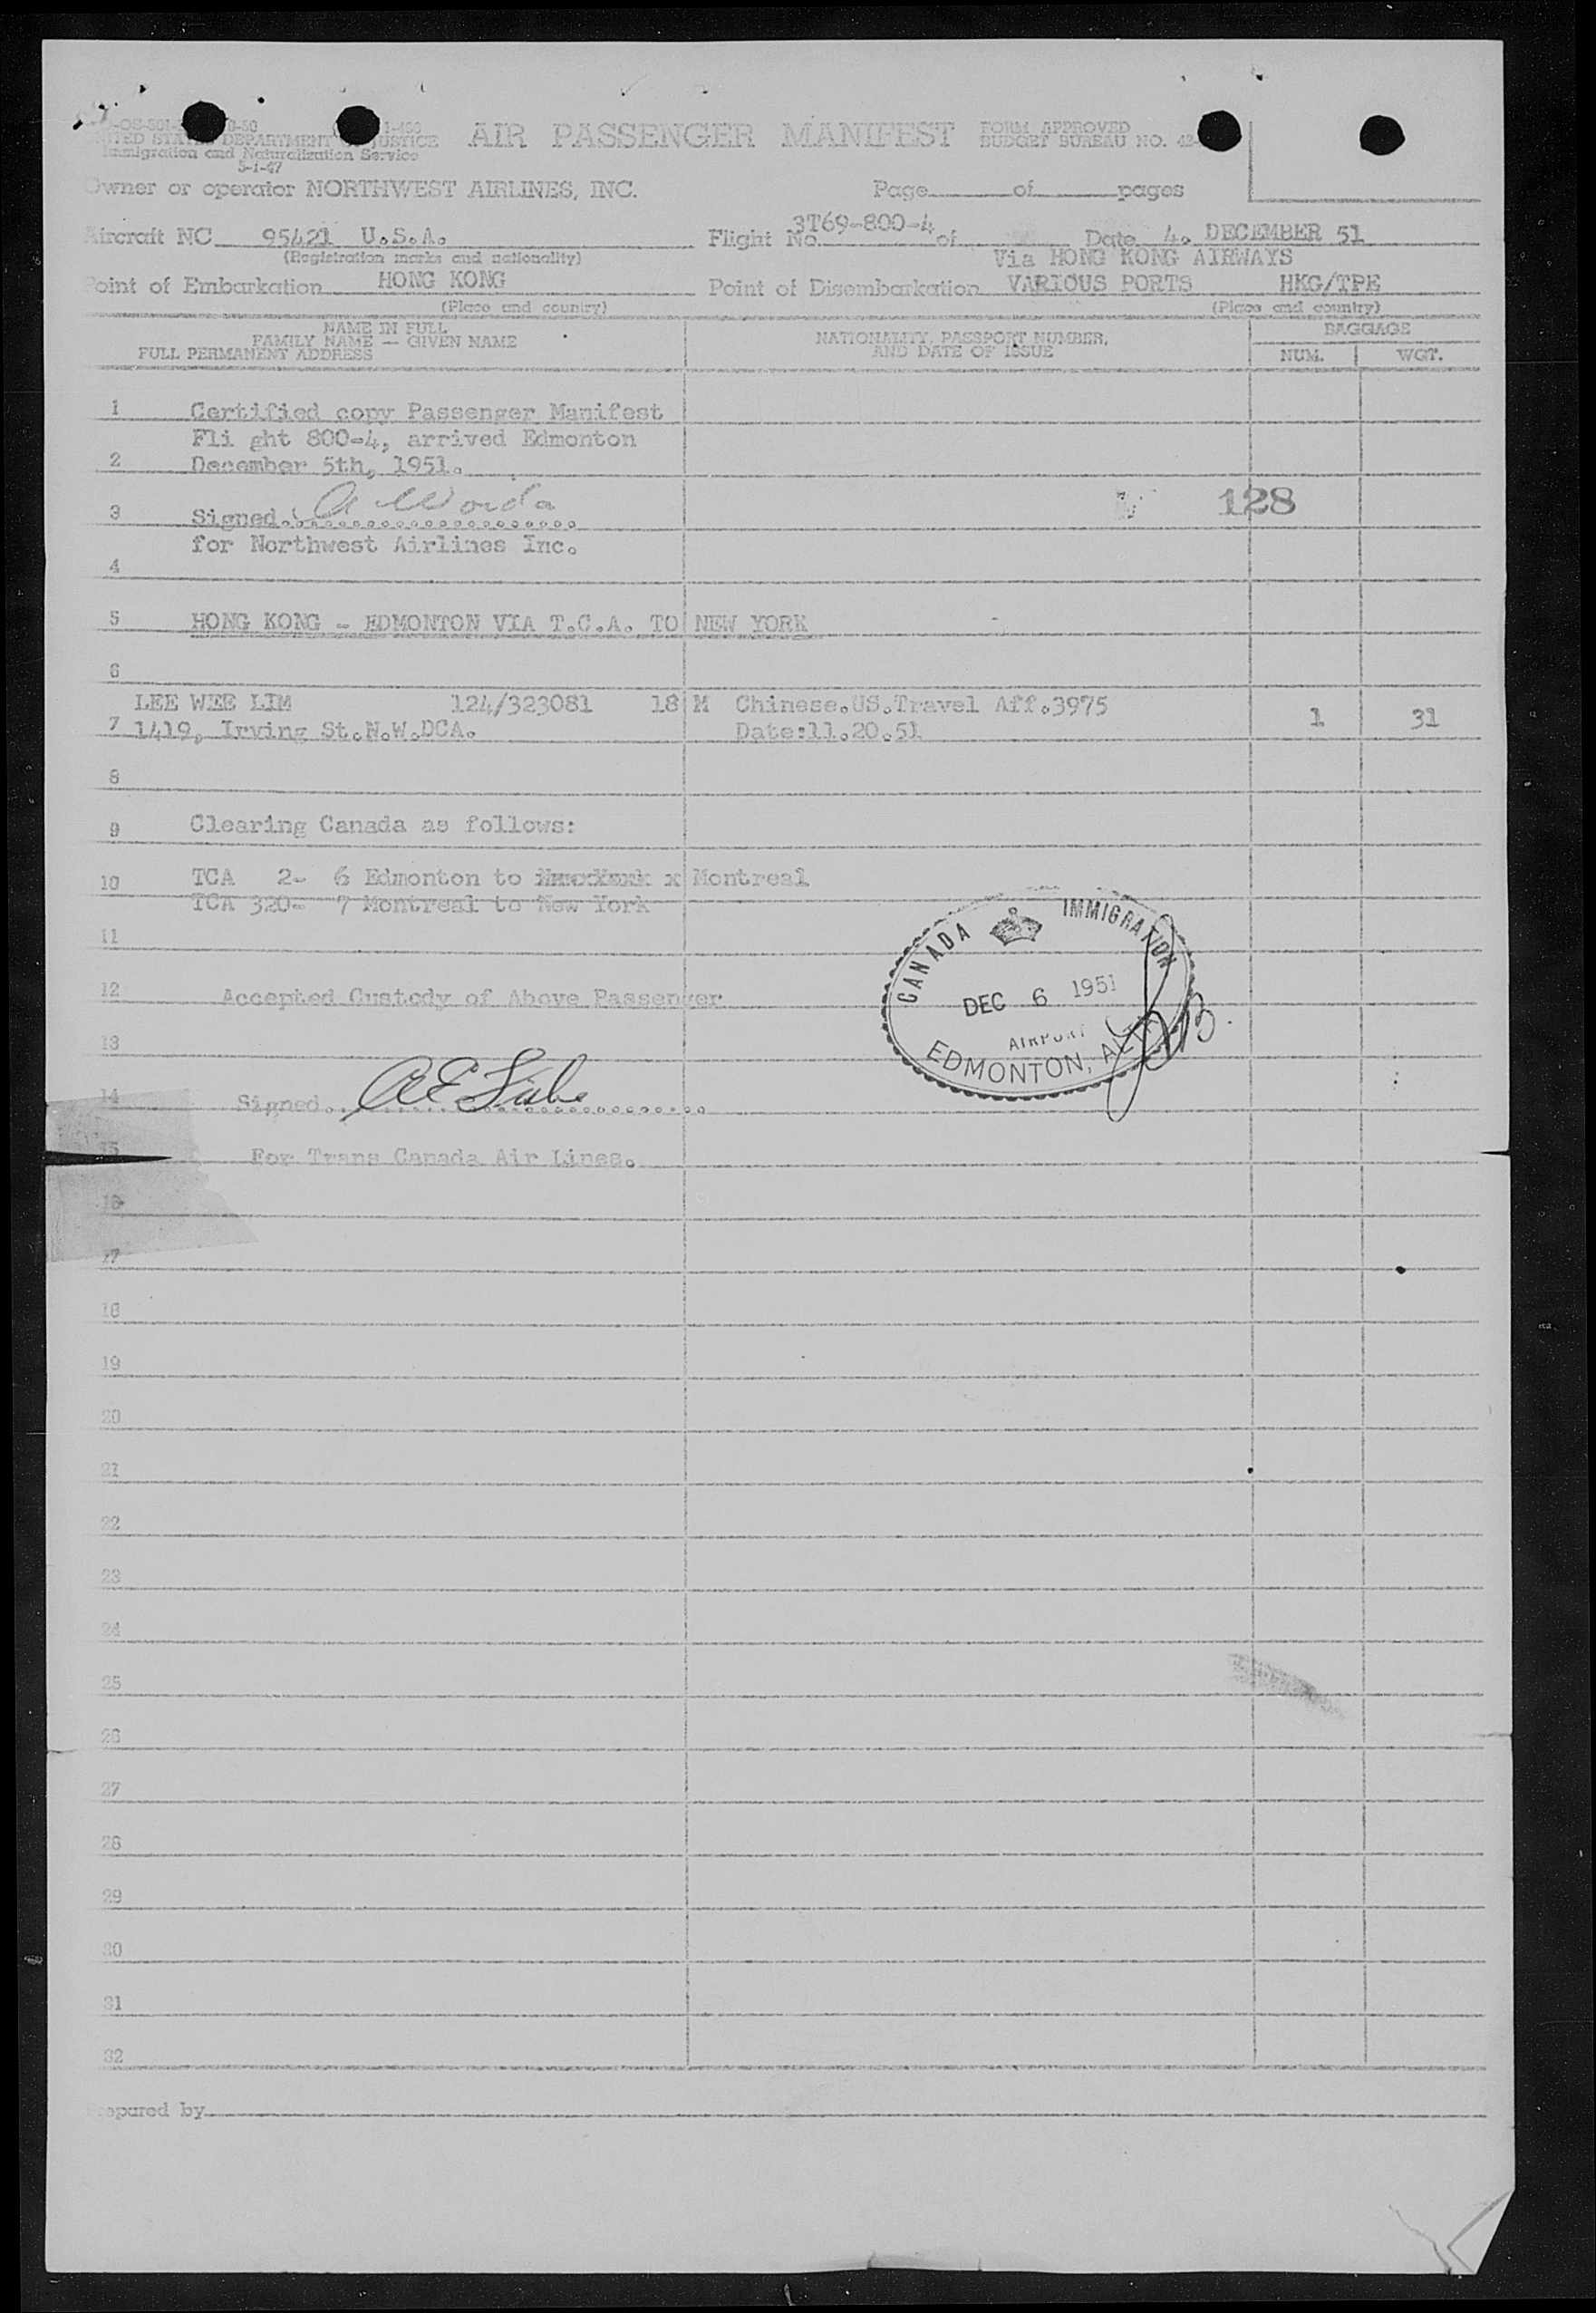 UNITED STATES DEPARTMENT OF JUSTICE
Immigration and Naturalization Service
5-1-47
AIR PASSENGER MANIFEST
FORM APPROVED
BUDGET BUREAU NO. 43-
Owner or operator NORTHWEST AIRLINES, INC.
Page of pages
Aircraft NC 95421 U.S.A.
(Registration marks and nationality)
Flight No. 3T69-800-4 of Date 4. DECEMBER 51
Via HONG KONG AIRWAYS
Point of Embarkation HONG KONG
(Place and country)
Point of Disembarkation VARIOUS PORTS HKG/TPE
(Place and country)
NAME IN FULL
FAMILY NAME — GIVEN NAME
FULL PERMANENT ADDRESS
NATIONALITY, PASSPORT NUMBER,
AND DATE OF ISSUE
BAGGAGE
NUM. WGT.
1 Certified copy Passenger Manifest
Fli ght 800-4, arrived Edmonton
2 December 5th, 1951.
3 Signed
128
for Northwest Airlines Inc.
4
5 HONG KONG - EDMONTON VIA T.C.A. TO NEW YORK
6
LEE WEE LIM 124/323081 18 M Chinese.US.Travel Aff.3975
7 1419, Irving St.N.W.DCA. Date:11.20.51 1 31
8
9 Clearing Canada as follows:
10 TCA 2- 6 Edmonton to x Montreal
TCA 320- 7 Montreal to New York
11
CANADA IMMIGRATION
DEC 6 1951
AIRPORT
EDMONTON, ALTA
12 Accepted Custody of Above Passenger
13
14 Signed
15 For Trans Canada Air Lines.
16
17
18
19
20
21
22
23
24
25
26
27
28
29
30
31
32
Prepared by